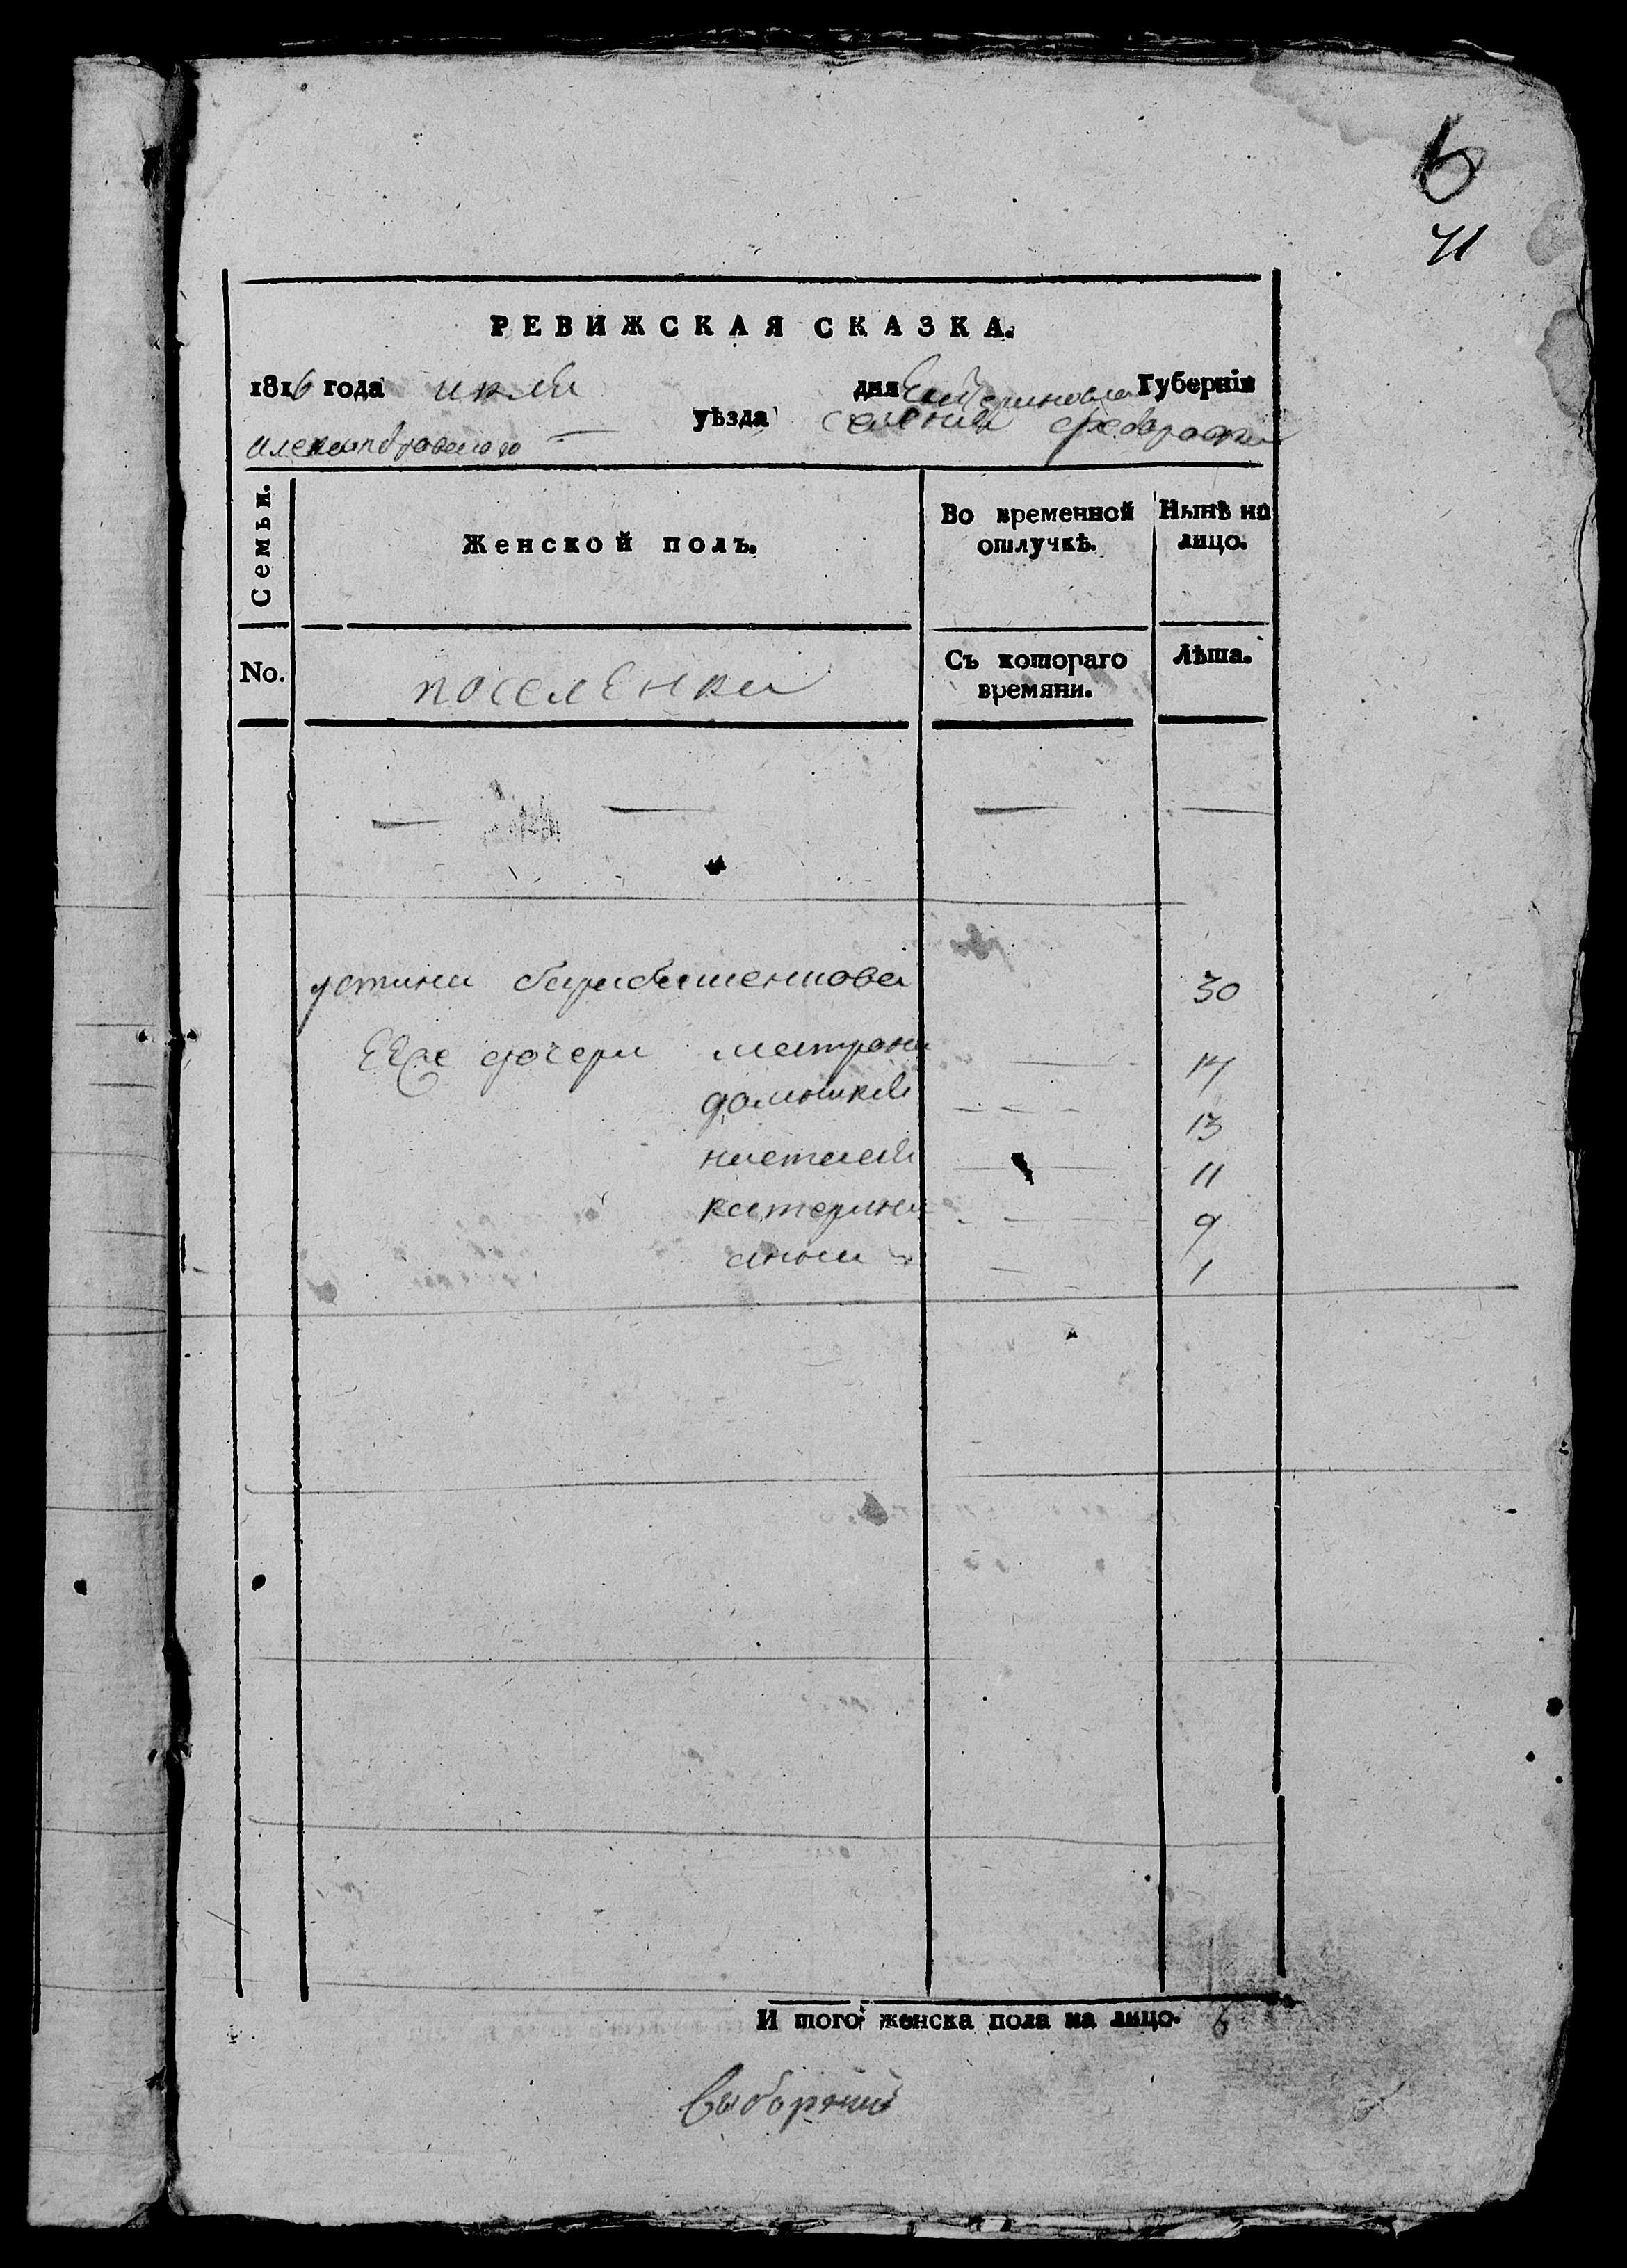 6
71
РЕВИЖСКАЯ СКАЗКА.
1816 года июля дня Екатериновла Губерніи
александровского уѣзда селения федоровки
Семьи. Женской полъ. Во временной отлучкѣ. Нынѣ на лицо.
No. поселенка Съ котораго времяни. Лѣта.
устина барабашенкова 30
Еѣ же дочери матрона 14
домникия 13
настасия 11
катерина 9
анна 1
И того женска пола на лицо. 6
выборный